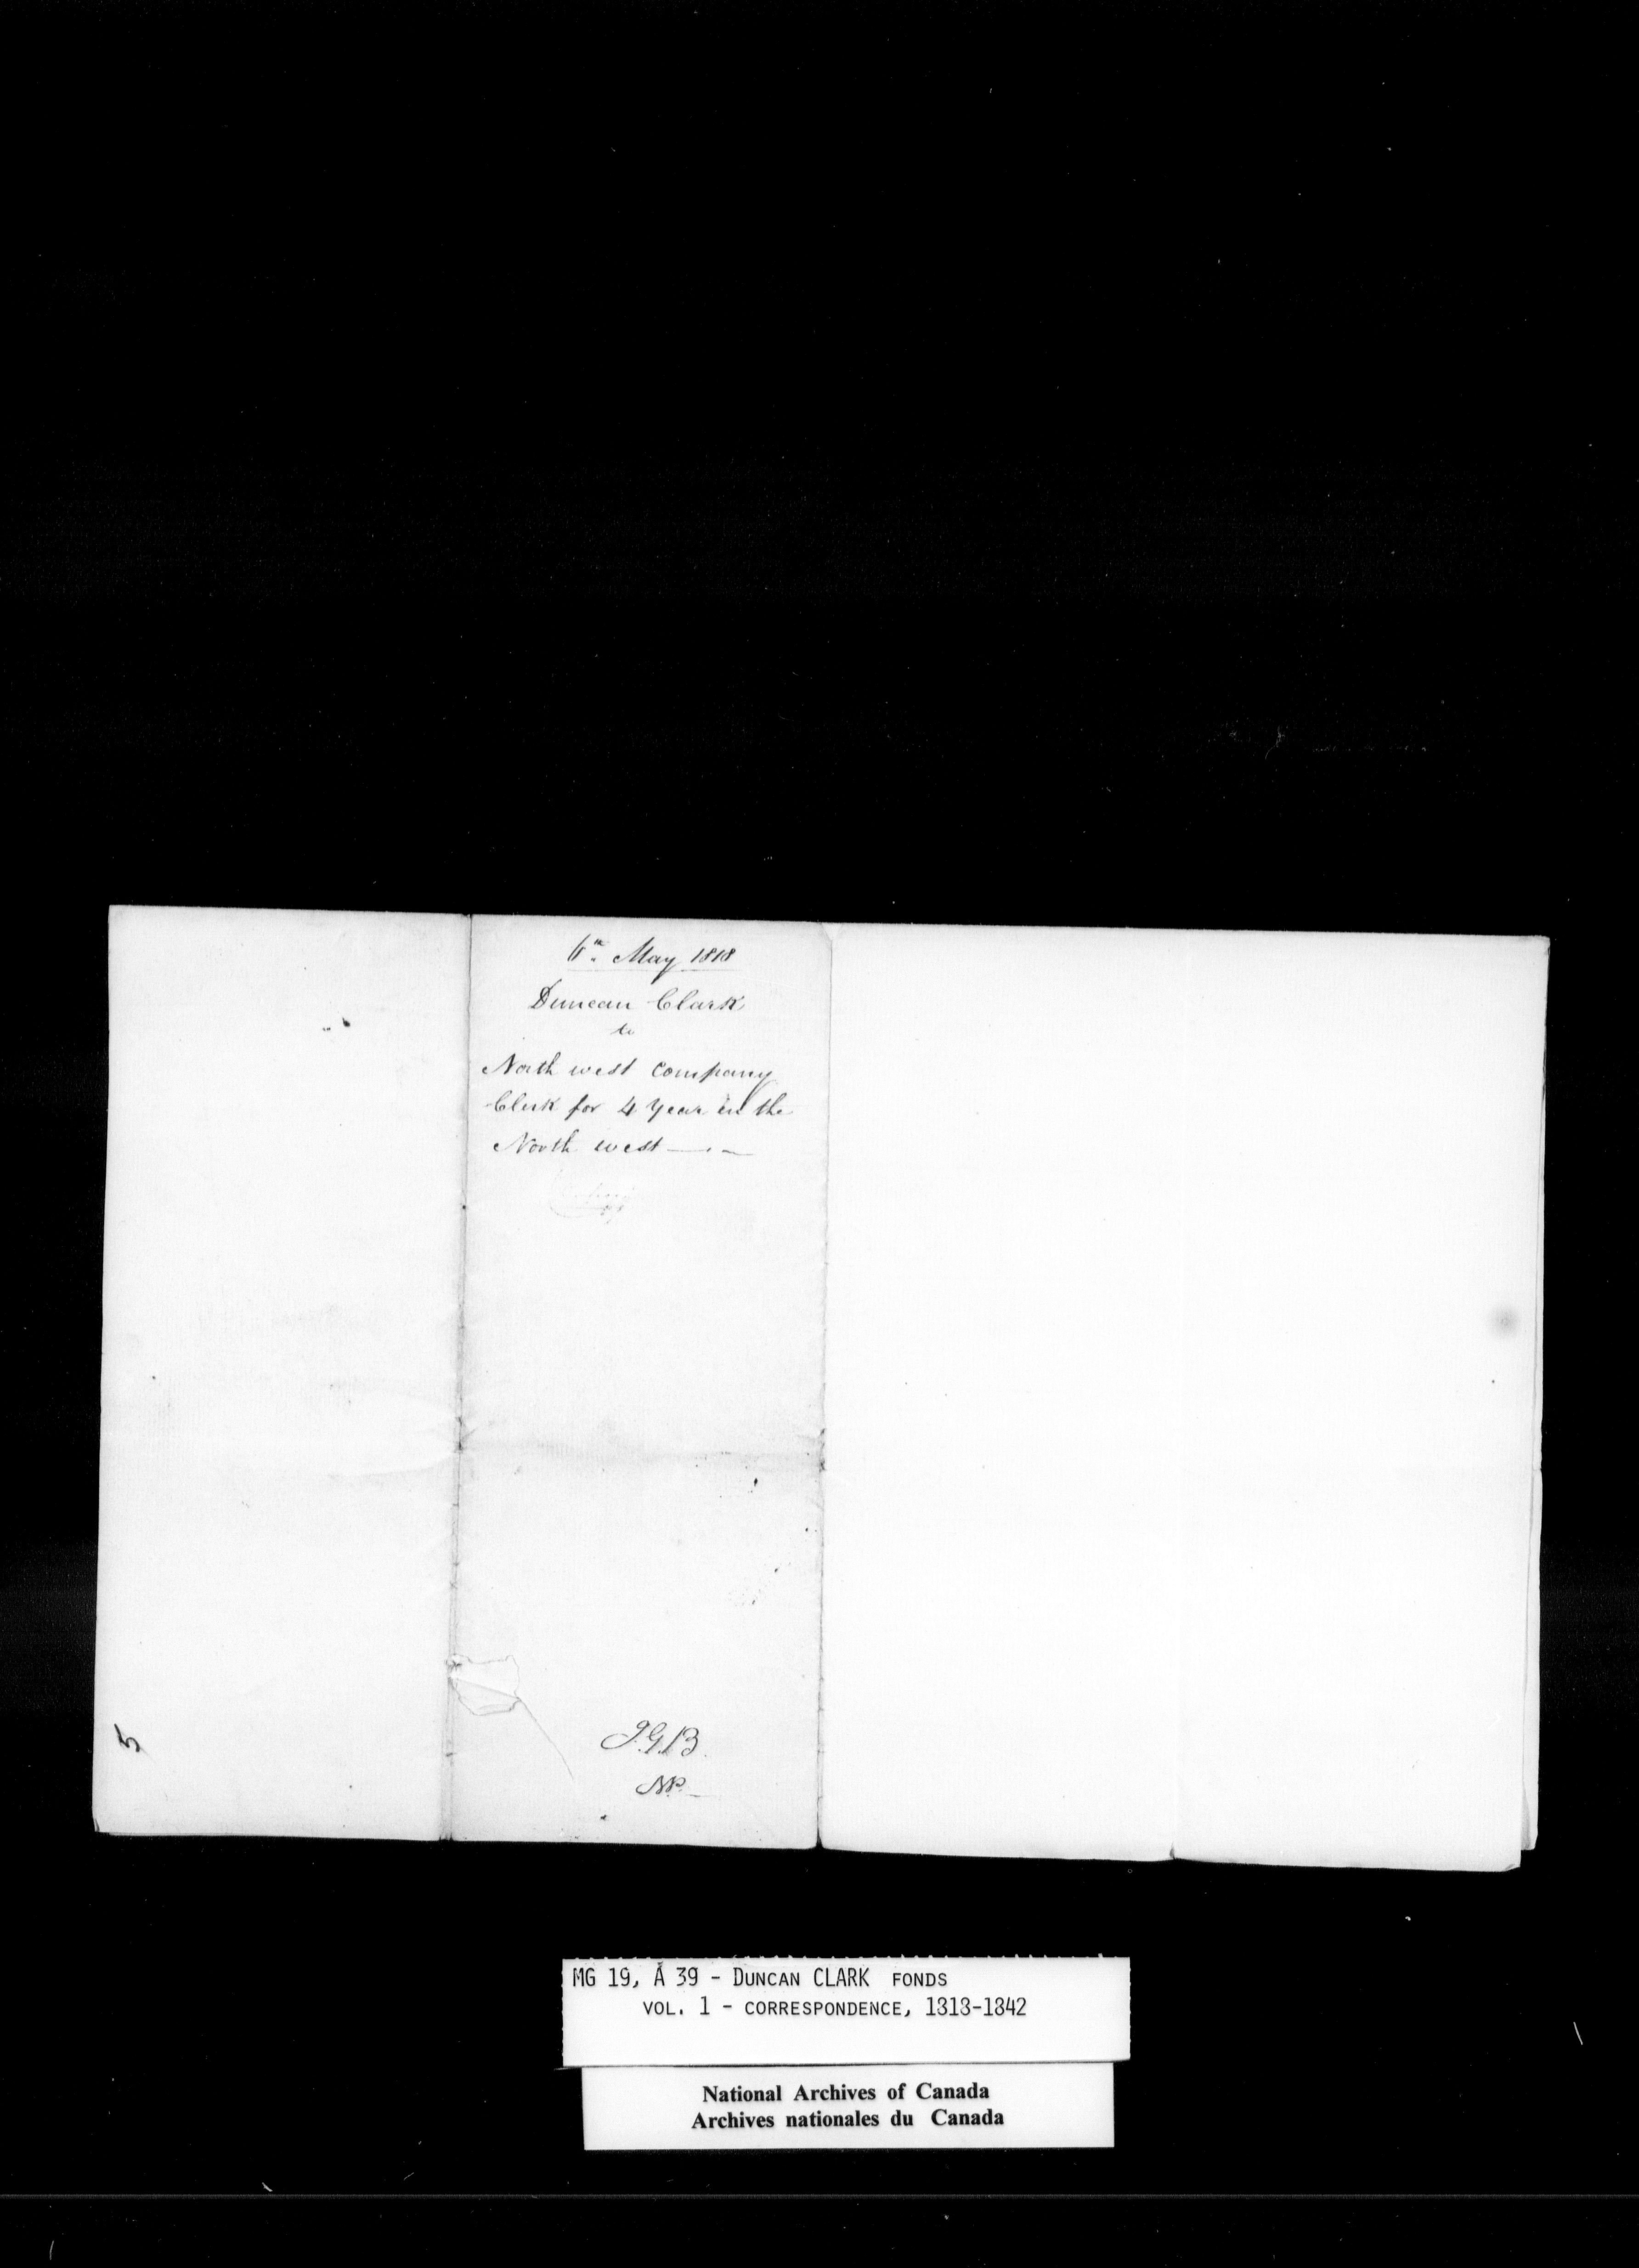 6th. May 1818
Duncan Clark
to
North west Company
Clerk for 4 Year in the
North west
J.G.B.
NP.
5
MG 19, A 39 - DUNCAN CLARK FONDS
VOL. 1 - CORRESPONDENCE, 1818-1842
National Archives of Canada
Archives nationales du Canada